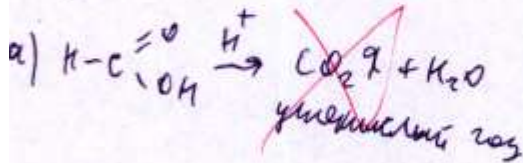 а) H-C =O OH H⁺ → CO₂↑ + H₂O
углекислый газ